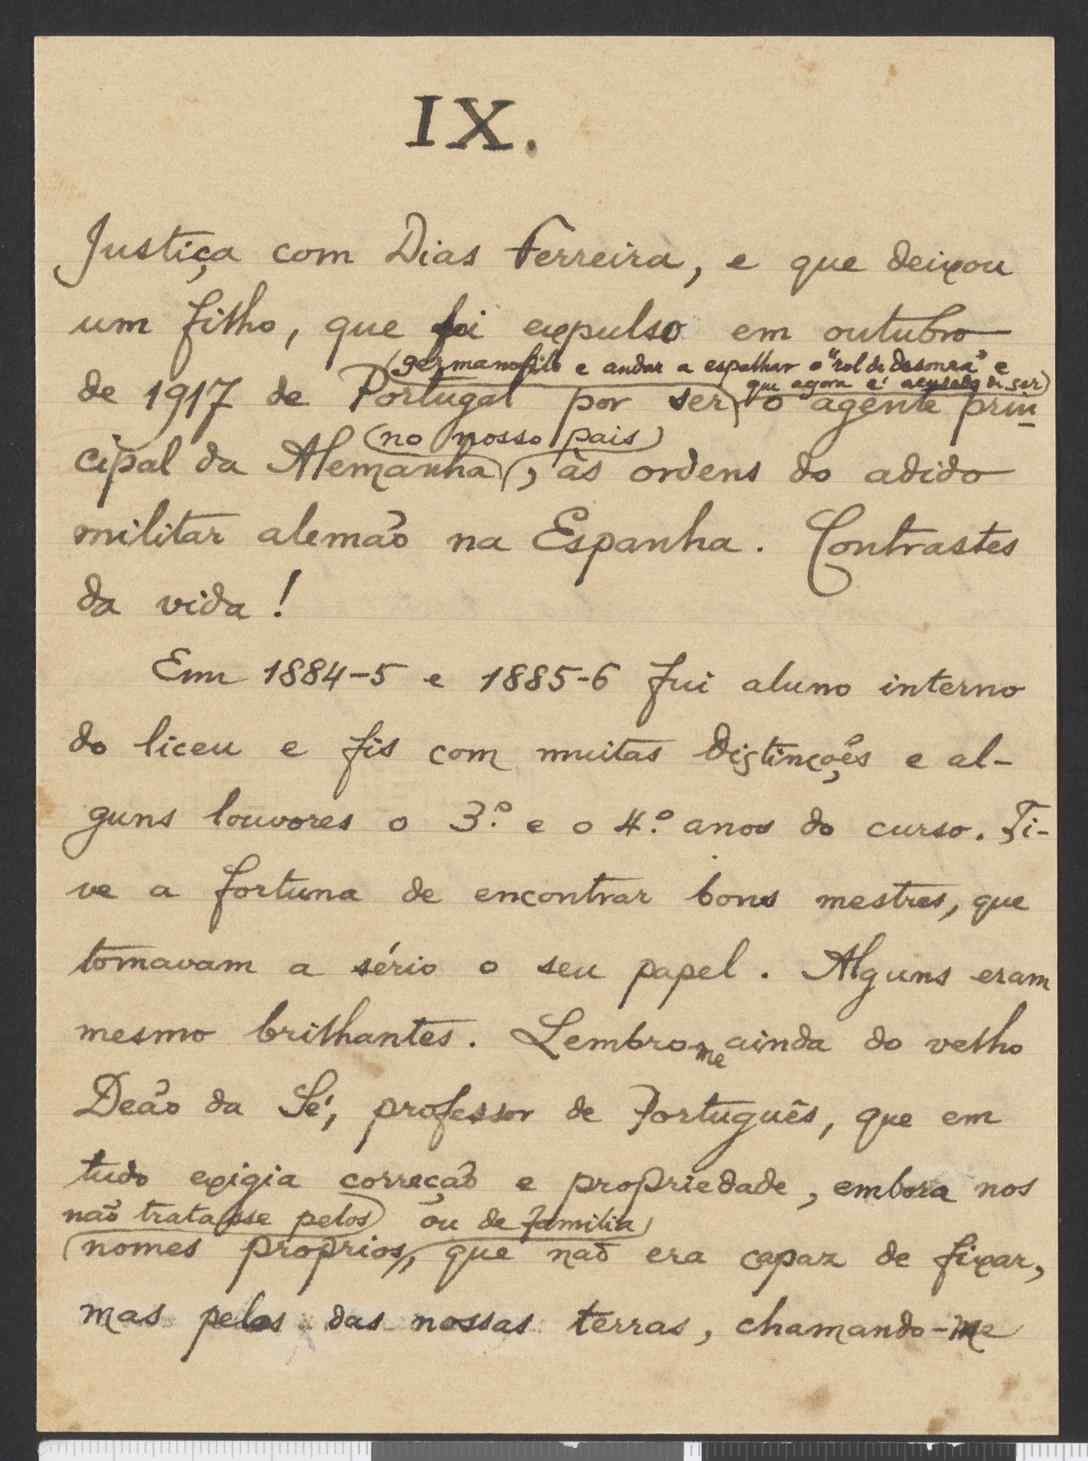 IX.
Justiça com Dias Ferreira, e que deixou
um filho, que foi expulso em outubro
(germanofilo e andar a espalhar o "rol de desonra" e
que agora é acusado de ser)
de 1917 de Portugal por ser o agente prin-
(no nosso pais)
cipal da Alemanha, às ordens do adido
militar alemão na Espanha. Contrastes
da vida!
Em 1884-5 e 1885-6 fui aluno interno
do liceu e fis com muitas distinções e al-
guns louvores o 3.º e o 4.º anos do curso. Ti-
ve a fortuna de encontrar bons mestres, que
tomavam a sério o seu papel. Alguns eram
mesmo brilhantes. Lembro-me ainda do velho
Deão da Sé, professor de Português, que em
tudo exigia correção e propriedade, embora nos
não tratasse pelos ou de familia
nomes proprios, que não era capaz de fixar,
mas pelos das nossas terras, chamando-me